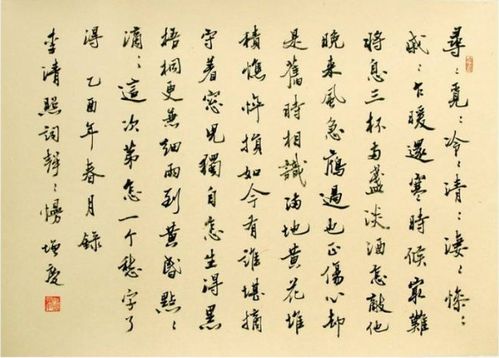 尋〻覓〻冷〻清〻淒〻慘〻
戚〻乍暖還寒時候最難
將息三杯兩盞淡酒怎敵他
晚来風急鴈過也正傷心却
是舊時相識滿地黄花堆
積憔悴損如今有誰堪摘
守着窓兒獨自怎生得黑
梧桐更兼細雨到黄昏點〻
滴〻這次第怎一个愁字了
得 乙酉年春月錄
李清照詞聲〻慢